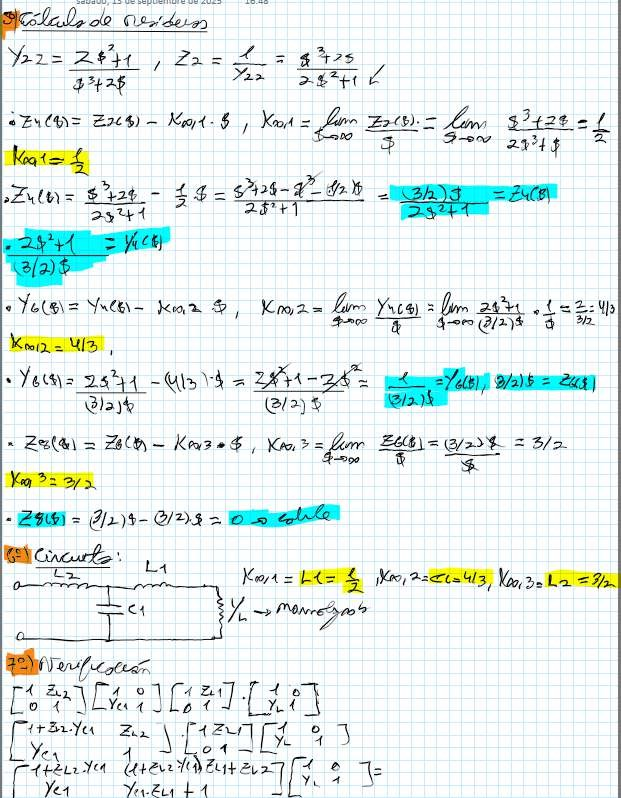 sábado, 13 de septiembre de 2025 16:48
5º) Cálculo de residuos
Y22 = (2$²+1)/($³+2$) , Z2 = 1/Y22 = ($³+2$)/(2$²+1)
• Z4($) = Z2($) - K∞,1 · $ , K∞,1 = lim $→∞ Z2($)/$ = lim $→∞ ($³+2$)/(2$³+$) = 1/2
K∞,1 = 1/2
• Z4($) = ($³+2$)/(2$²+1) - 1/2 $ = ($³+2$-$³-(1/2)$)/(2$²+1) = (3/2)$/(2$²+1) = Z4($)
• (2$²+1)/((3/2)$) = Y4($)
• Y6($) = Y4($) - K∞,2 $ , K∞,2 = lim $→∞ Y4($)/$ = lim $→∞ (2$²+1)/((3/2)$) · 1/$ = 2/(3/2) = 4/3
K∞,2 = 4/3 ,
• Y6($) = (2$²+1)/((3/2)$) - (4/3)·$ = (2$²+1-2$²)/((3/2)$) = 1/((3/2)$) = Y6($), (3/2)$ = Z6($)
• Z8($) = Z6($) - K∞,3 · $ , K∞,3 = lim $→∞ Z6($)/$ = (3/2)$/$ = 3/2
K∞,3 = 3/2
• Z8($) = (3/2)$ - (3/2)$ = 0
6º) Circuito:
L2 L1
K∞,1 = L1 = 1/2 , K∞,2 = C1 = 4/3, K∞,3 = L2 = 3/2
C1
YL →
7º) Verificación
[1 ZL2; 0 1] [1 0; YC1 1] [1 ZL1; 0 1] · [1 0; YL 1]
[1+ZL2·YC1 ZL2; YC1 1] · [1 ZL1; 0 1] [1 0; YL 1]
[1+ZL2·YC1 (1+ZL2·YC1)ZL1+ZL2; YC1 YC1·ZL1+1] [1 0; YL 1] =